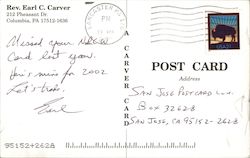 Rev. Earl C. Carver
212 Pheasant Dr.
Columbia, PA 17512-1636
PM
USA21
Missed your NEW
Card last year.
Here's mine for 2002
Let's trade.
Earl
A CARVER CARD
POST CARD
Address
SAN JOSE POSTCARD
BOX 32628
SAN JOSE, CA 95152-2628
95152+2628